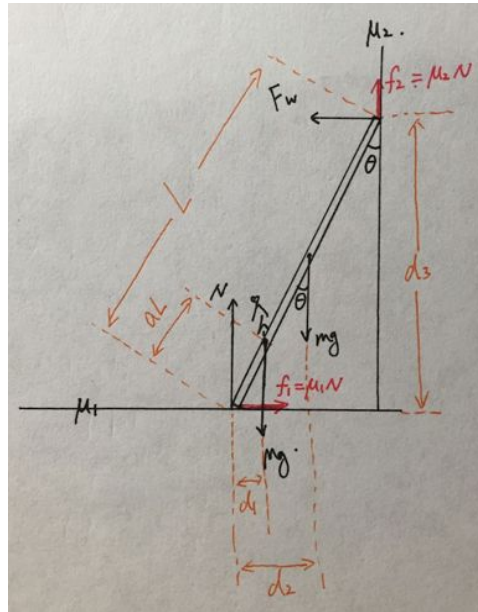 μ2.
f2 = μ2N
Fw
θ
L
d3
aL
N
θ
mg
f1=μ1N
μ1
Mg.
d1
d2